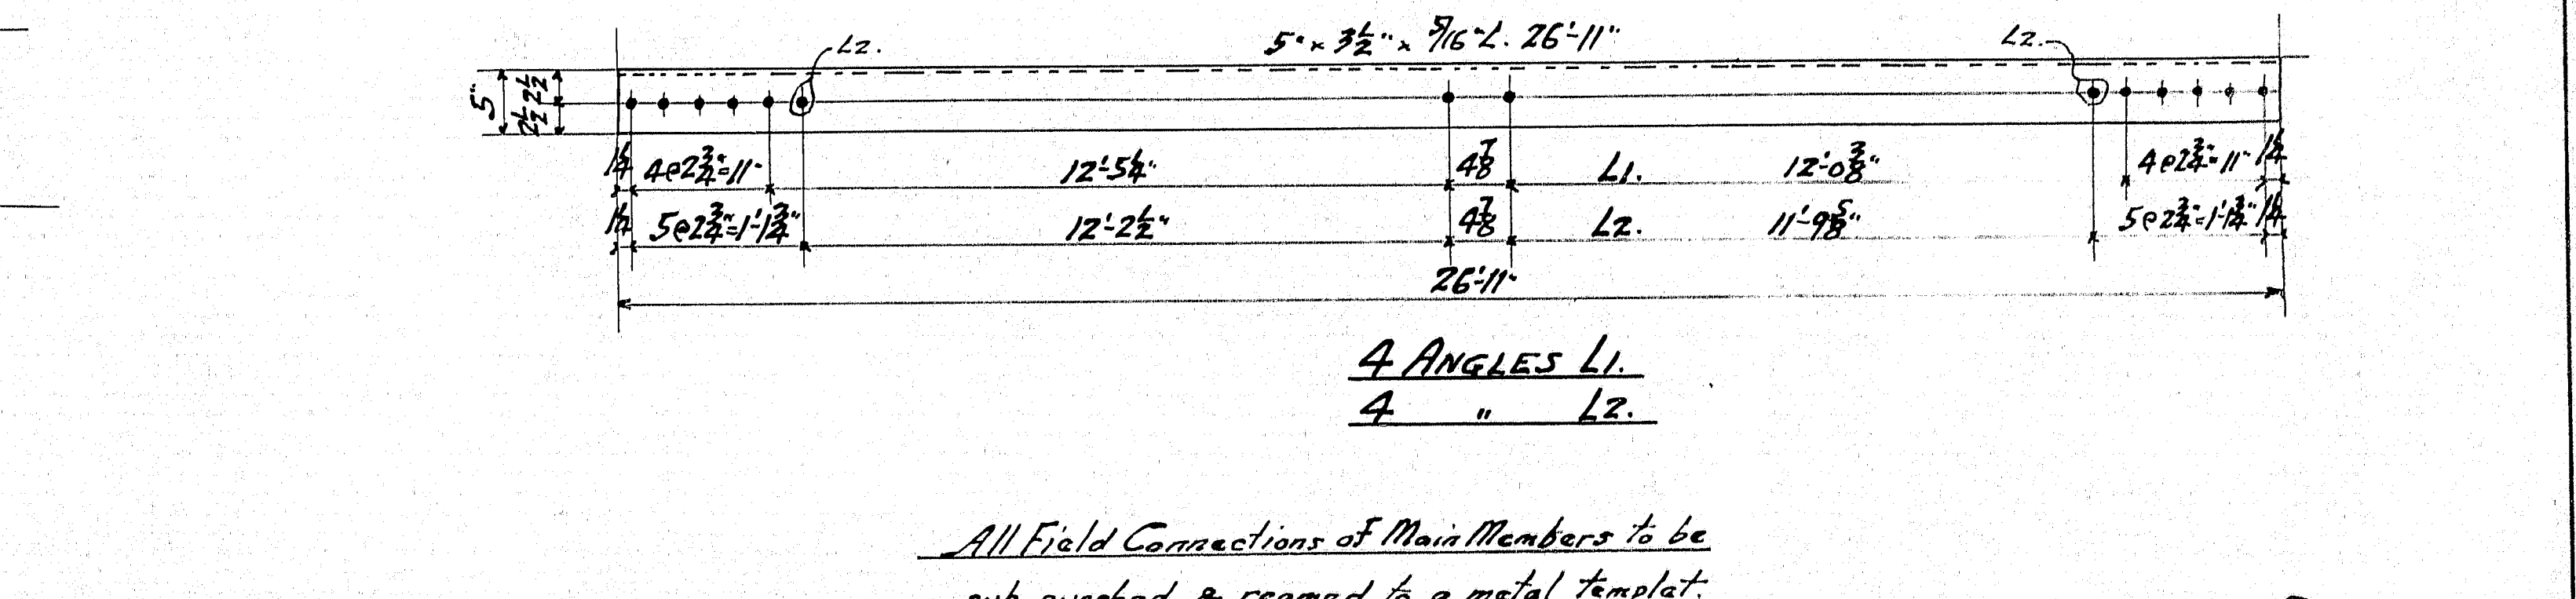 5" x 3 1/2" x 5/16" L. 26'-11"
L2. L2.
5" 2 1/2 2 1/2
1 1/4 4@2 3/4"=11" 12'-5 1/4" 4 7/8 L1. 12'-0 3/8" 4@2 3/4"=11" 1 1/4
1 1/4 5@2 3/4"=1'-1 3/4" 12'-2 1/2" 4 7/8 L2. 11'-9 5/8" 5@2 3/4"=1'-1 3/4" 1 1/4
26'-11"
4 ANGLES L1.
4 " L2.
All Field Connections of Main Members to be
sub punched & reamed to a metal templat.